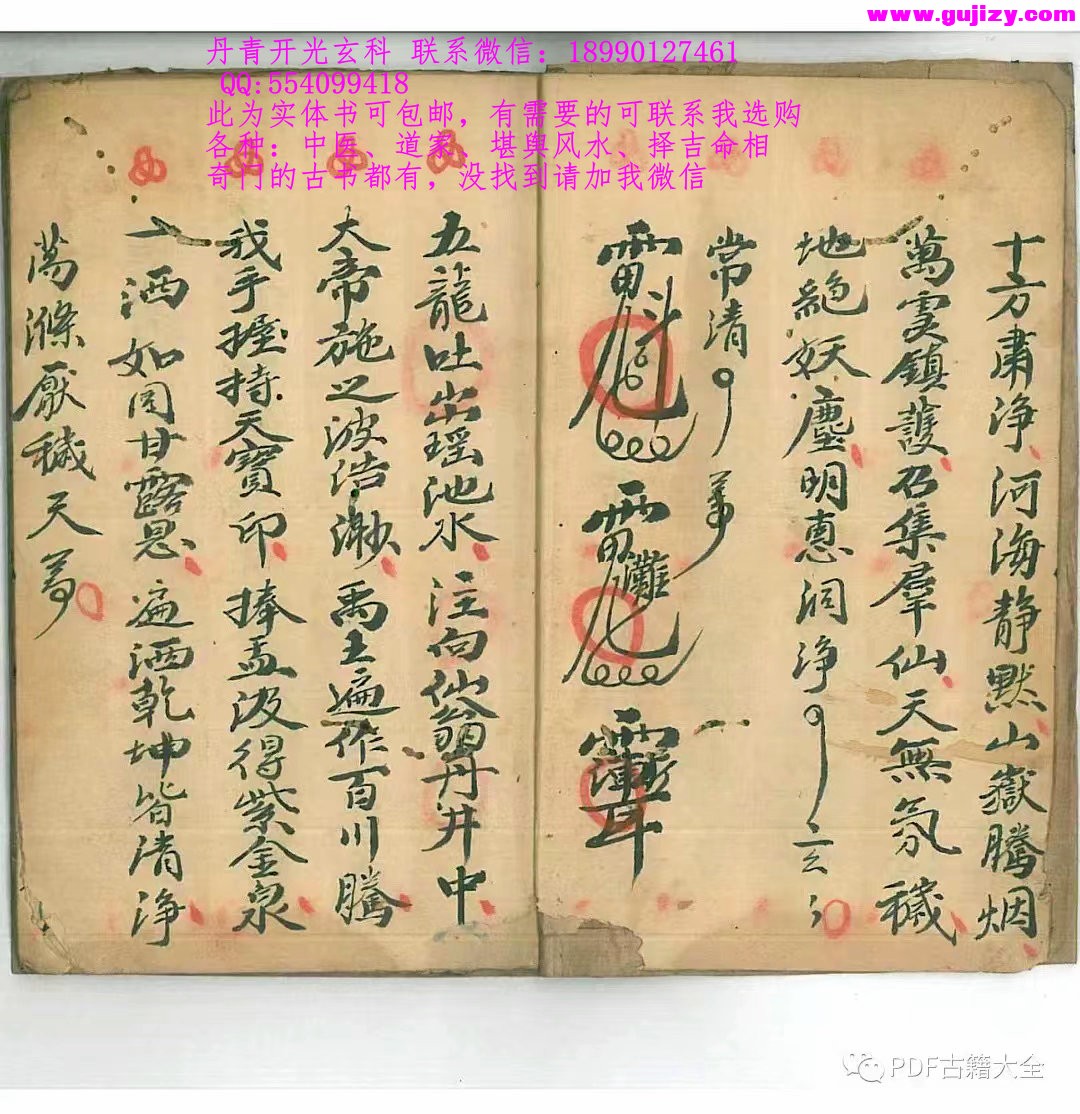 www.gujizy.com
丹青开光玄科 联系微信：18990127461
QQ:554099418
此为实体书可包邮，有需要的可联系我选购
各种：中医、道家、堪舆风水、择吉命相
奇门的古书都有，没找到请加我微信
十方肅净河海静默山嶽騰烟
萬灵鎮護召集羣仙天無氛穢
地絶妖塵明惠洞净
常清
五龍吐出瑶池水注向仙翁丹井中
大帝施之波浩渺禹王遍作百川騰
我手握持天寶印捧盂汲得紫金泉
一洒如同甘露恩遍洒乾坤皆清浄
萬滌厭穢天尊
PDF古籍大全